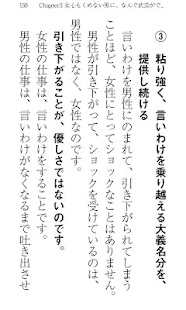 159
Chapter3 女心もくめない男に、なんで武芸がで。
③ 粘り強く、言いわけを乗り越える大義名分を、
提供し続ける
言いわけを男性にのまれて、引き下がられてしまう
ことほど、女性にとってショックなことはありません。
男性が引き下がって、ショックを受けているのは、
男性ではなく、女性なのです。
引き下がることが、優しさではないのです。
女性の仕事は、言いわけをすることです。
男性の仕事は、言いわけがなくなるまで吐き出させ